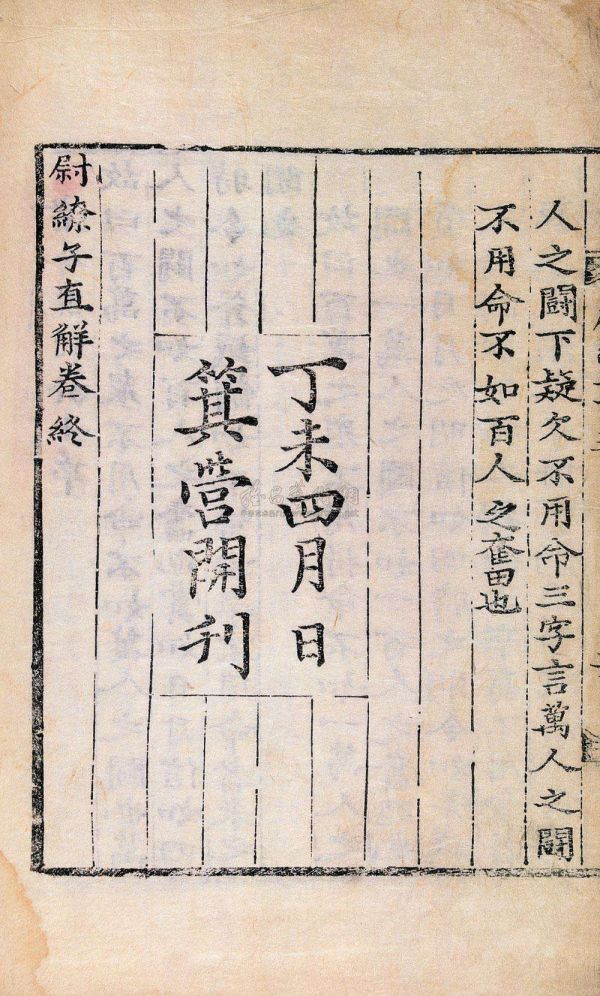 人之鬪下疑欠不用命三字言萬人之鬪
不用命不如百人之奮也
丁未四月日
箕營開刊
尉繚子直解卷終